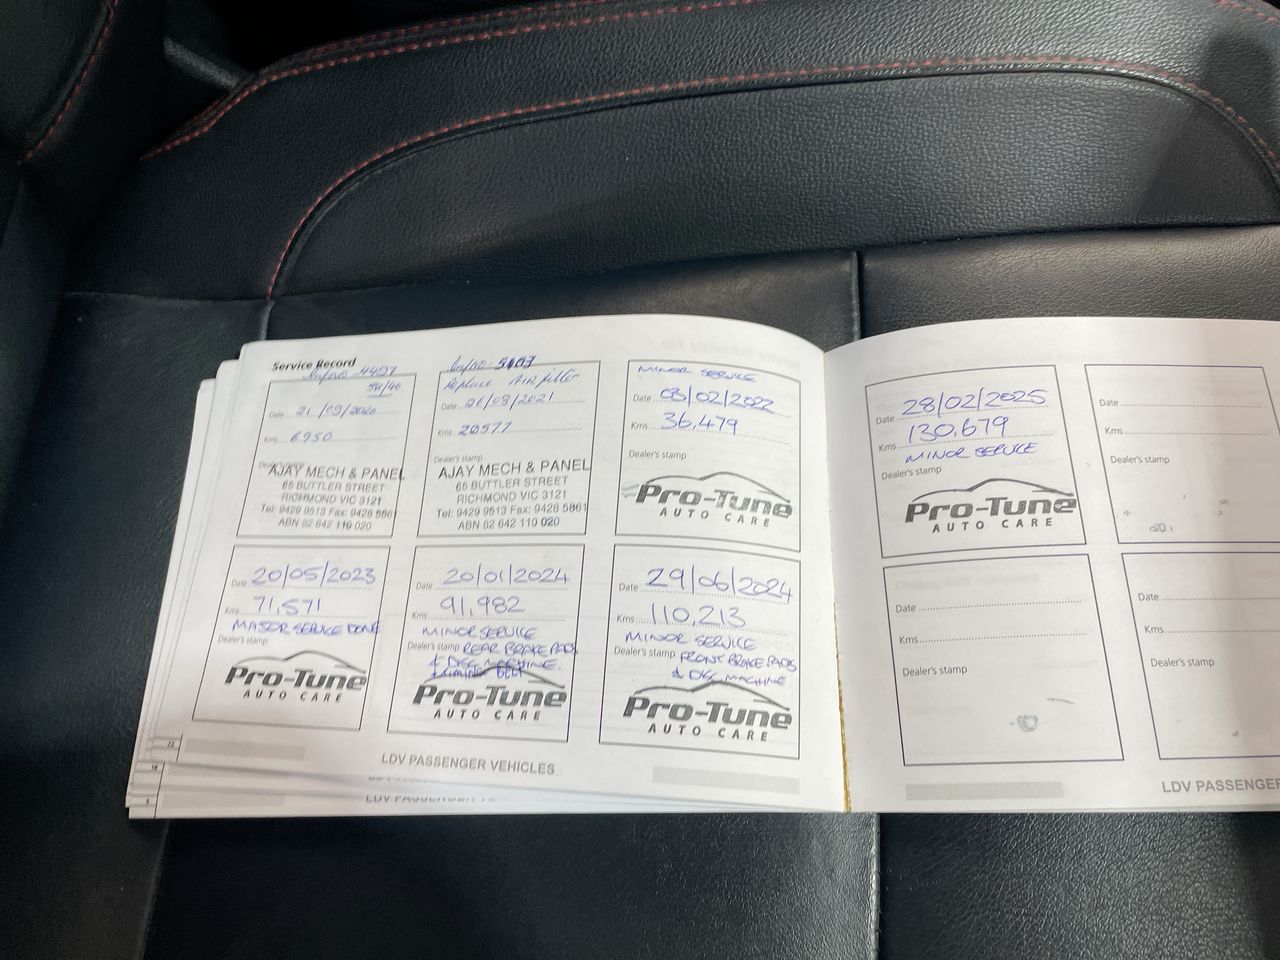 Service Record
Inv/no - 4497
5W/40
Date 21/09/2020
Kms 6950
Dealer's stamp
AJAY MECH & PANEL
65 BUTTLER STREET
RICHMOND VIC 3121
Tel: 9429 9513 Fax: 9428 5861
ABN 82 642 110 020
Inv/no - 5103
Replace Air filter
Date /08/2021
Kms 20577
Dealer's stamp
AJAY MECH & PANEL
65 BUTTLER STREET
RICHMOND VIC 3121
Tel: 9429 9513 Fax: 9428 5861
ABN 82 642 110 020
MINOR SERVICE
Date 03/02/2022
Kms 36,479
Dealer's stamp
Pro-Tune
AUTO CARE
Date 20/05/2023
Kms 71,571
MAJOR SERVICE DONE
Dealer's stamp
Pro-Tune
AUTO CARE
Date 20/01/2024
Kms 91,982
MINOR SERVICE
Dealer's stamp REAR BRAKE PADS
& DISC MACHINE.
+ TIMING BELT
Pro-Tune
AUTO CARE
Date 29/06/2024
Kms 110,213
MINOR SERVICE
Dealer's stamp FRONT BRAKE PADS
& DISC MACHINE
Pro-Tune
AUTO CARE
LDV PASSENGER VEHICLES
Date 28/02/2025
Kms 130,679
MINOR SERVICE
Dealer's stamp
Pro-Tune
AUTO CARE
Date
Kms
Dealer's stamp
Date
Kms
Dealer's stamp
Date
Kms
Dealer's stamp
LDV PASSENGER